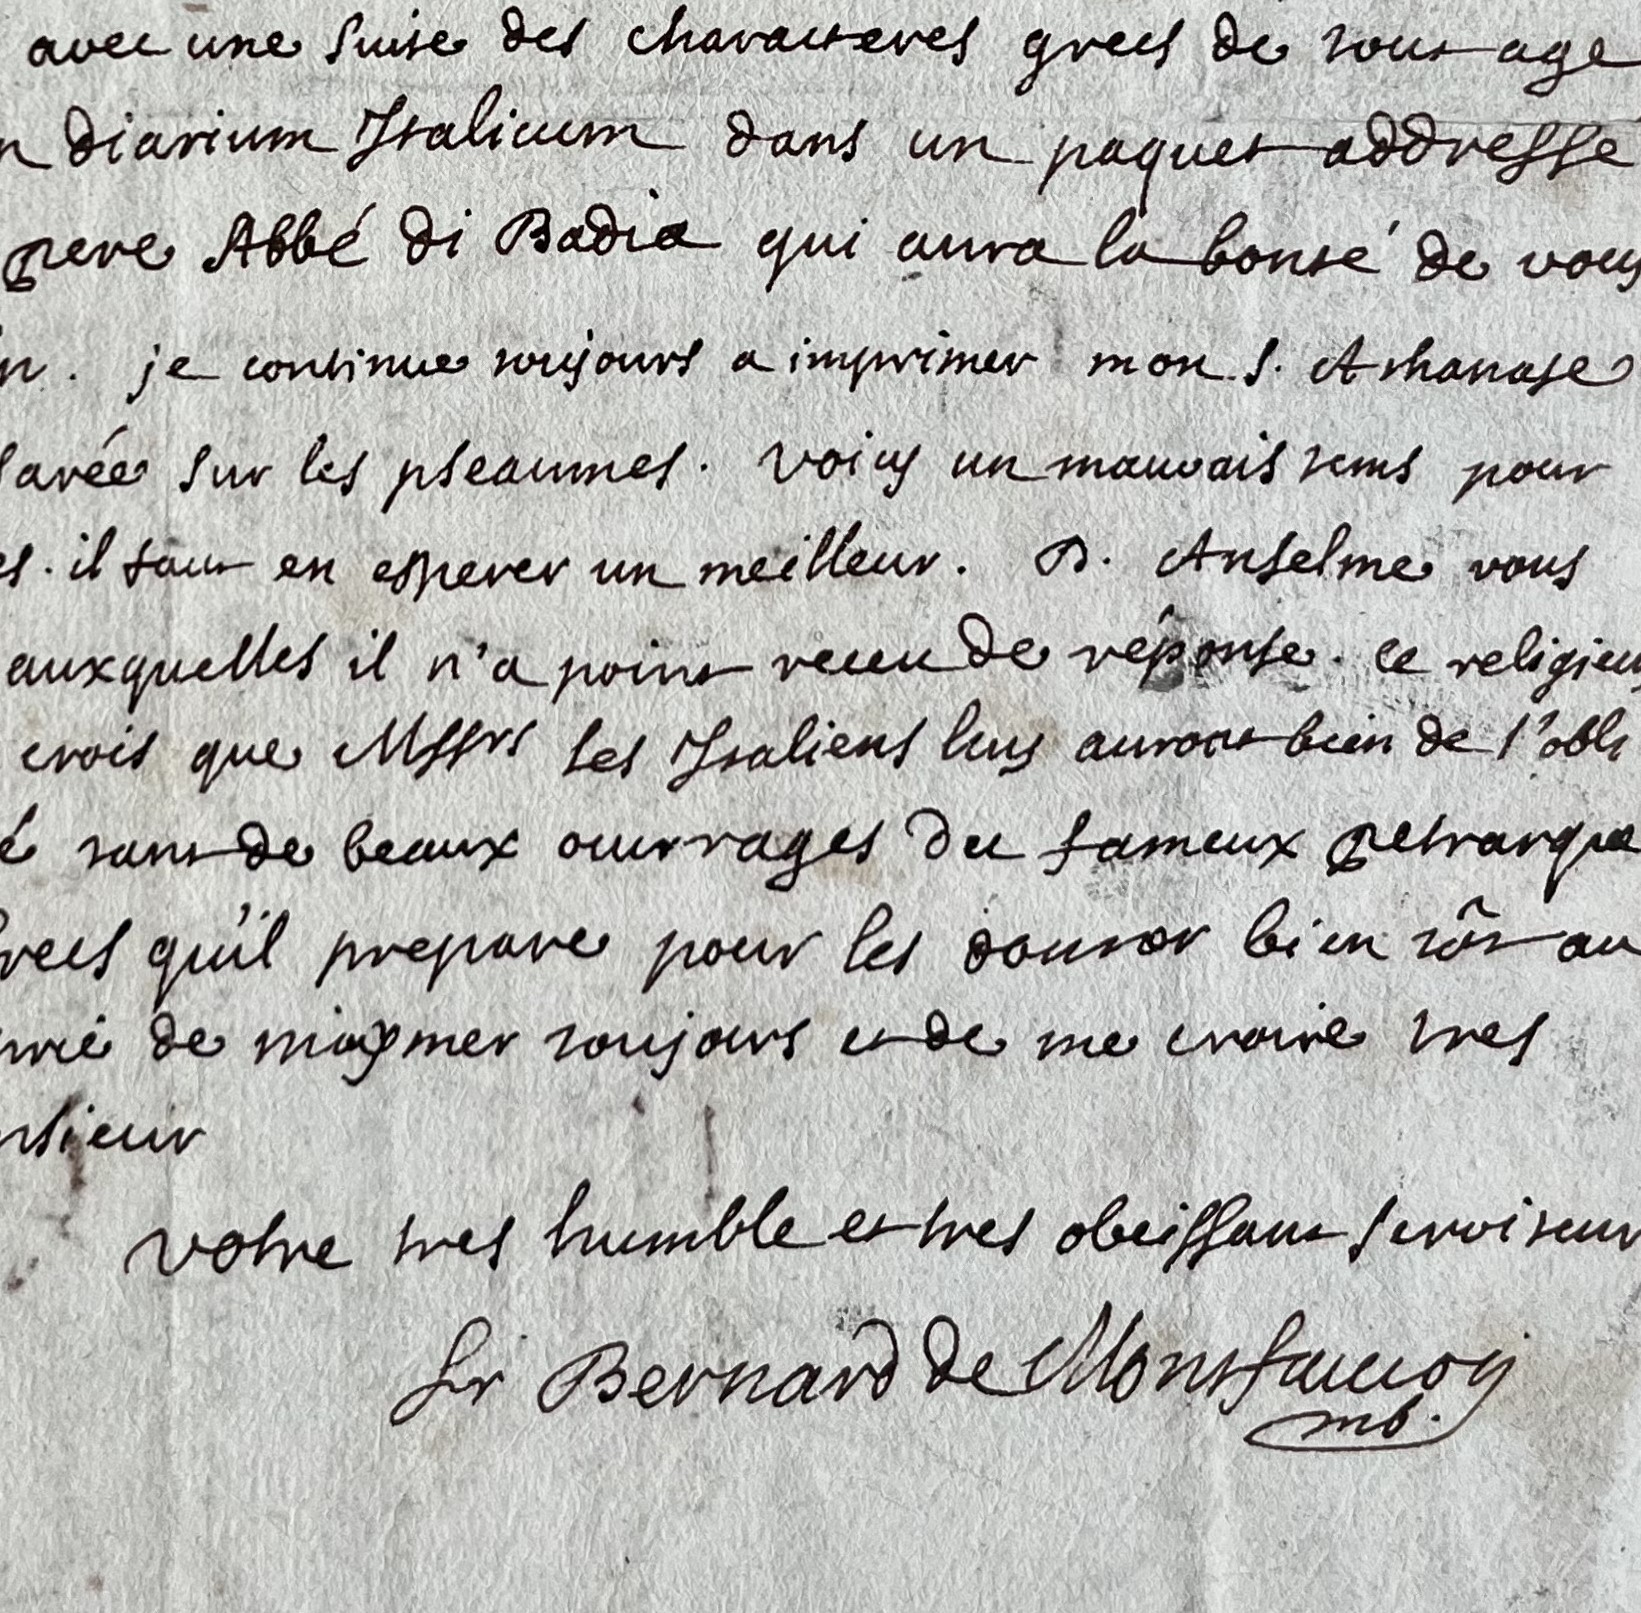 avec une suite des characteres grecs de tout age
n diarium Italicum dans un paquet addressé
pere Abbé di Badia qui aura la bonté de vous
n. je continue toujours a imprimer mon S. Athanase
sarée sur les pseaumes. voicy un mauvais tems pour
es. il faut en esperer un meilleur. D. Anselme vous
auxquelles il n'a point receu de réponse. ce religieux
crois que Mssrs les Italiens luy auront bien de l'obli
é tant de beaux ouvrages du fameux petrarque
grecs qu'il prepare pour les donner bien tôt au
de m'aymer toujours et de me croire tres
nsieur
votre tres humble et tres obeissant serviteur
fr Bernard de Montfaucon
mb.